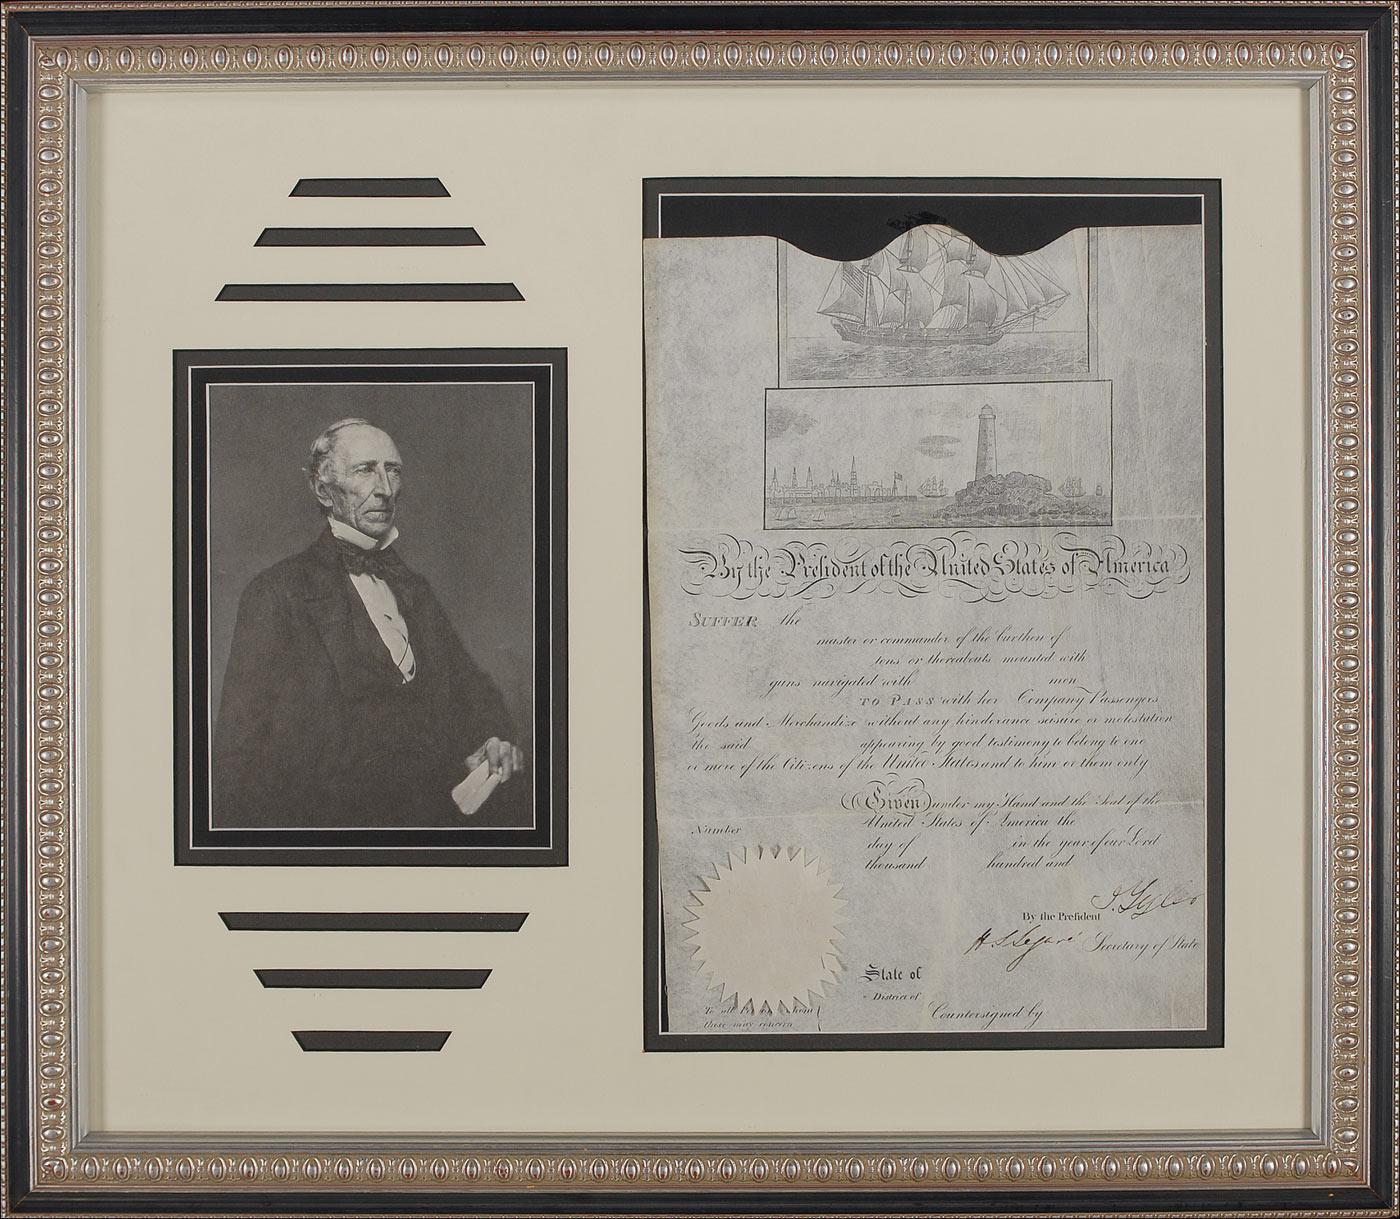 By the President of the United States of America
SUFFER the
master or commander of the burthen of
tons or thereabouts mounted with
guns navigated with men
TO PASS with her Company Passengers
Goods and Merchandize without any hinderance seisure or molestation
the said appearing by good testimony to belong to one
or more of the Citizens of the United States and to him or them only
Given under my Hand and the Seal of the
United States of America the
Number
day of in the year of our Lord
thousand hundred and
J. Tyler
By the President
H S Legaré Secretary of State
State of
District of
To all Persons whom
these may concern
Countersigned by